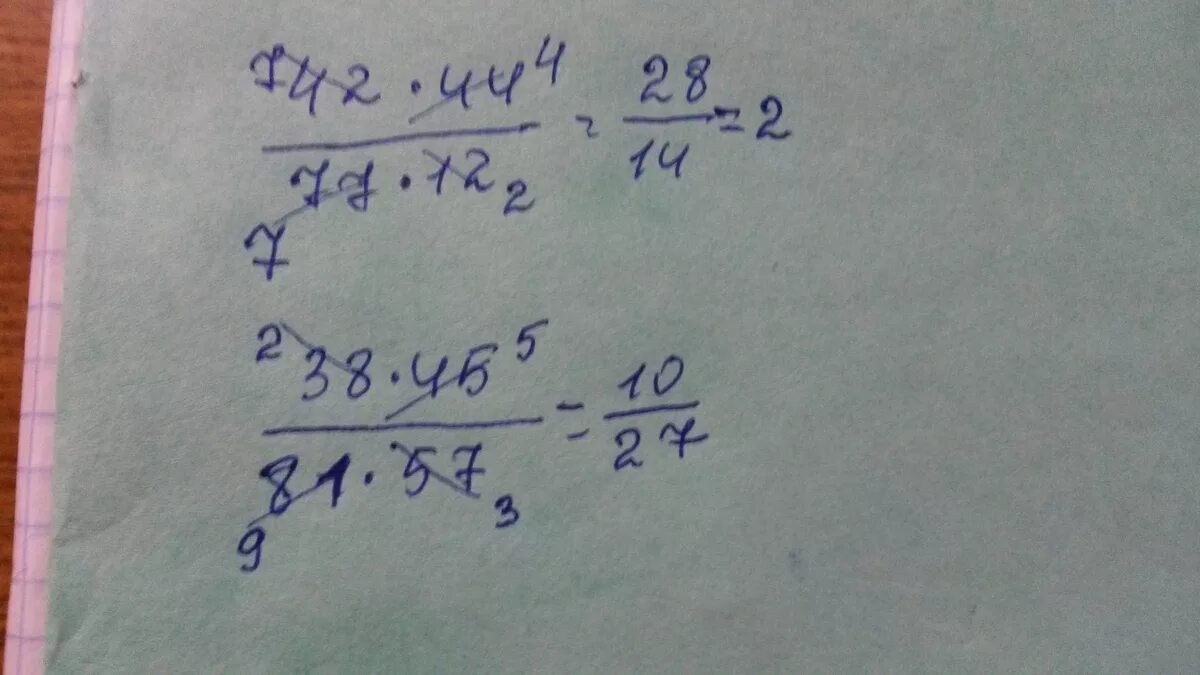 7 42 · 44 4
77 · 12 2
7
= 28
14
= 2
2 38 · 45 5
81 · 57 3
9
= 10
27